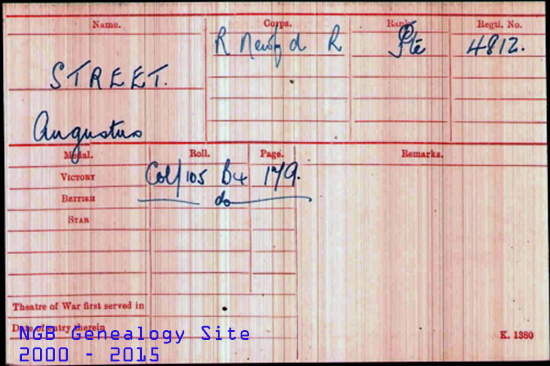 Name. Corps. Rank. Regtl. No.
R Newfd R Pte 4812.
STREET.
Augustus
Medal. Roll. Page. Remarks.
VICTORY Col/105 B4 179.
BRITISH do
STAR
Theatre of War first served in
Date of entry therein
K. 1380
NGB Genealogy Site
2000 - 2015